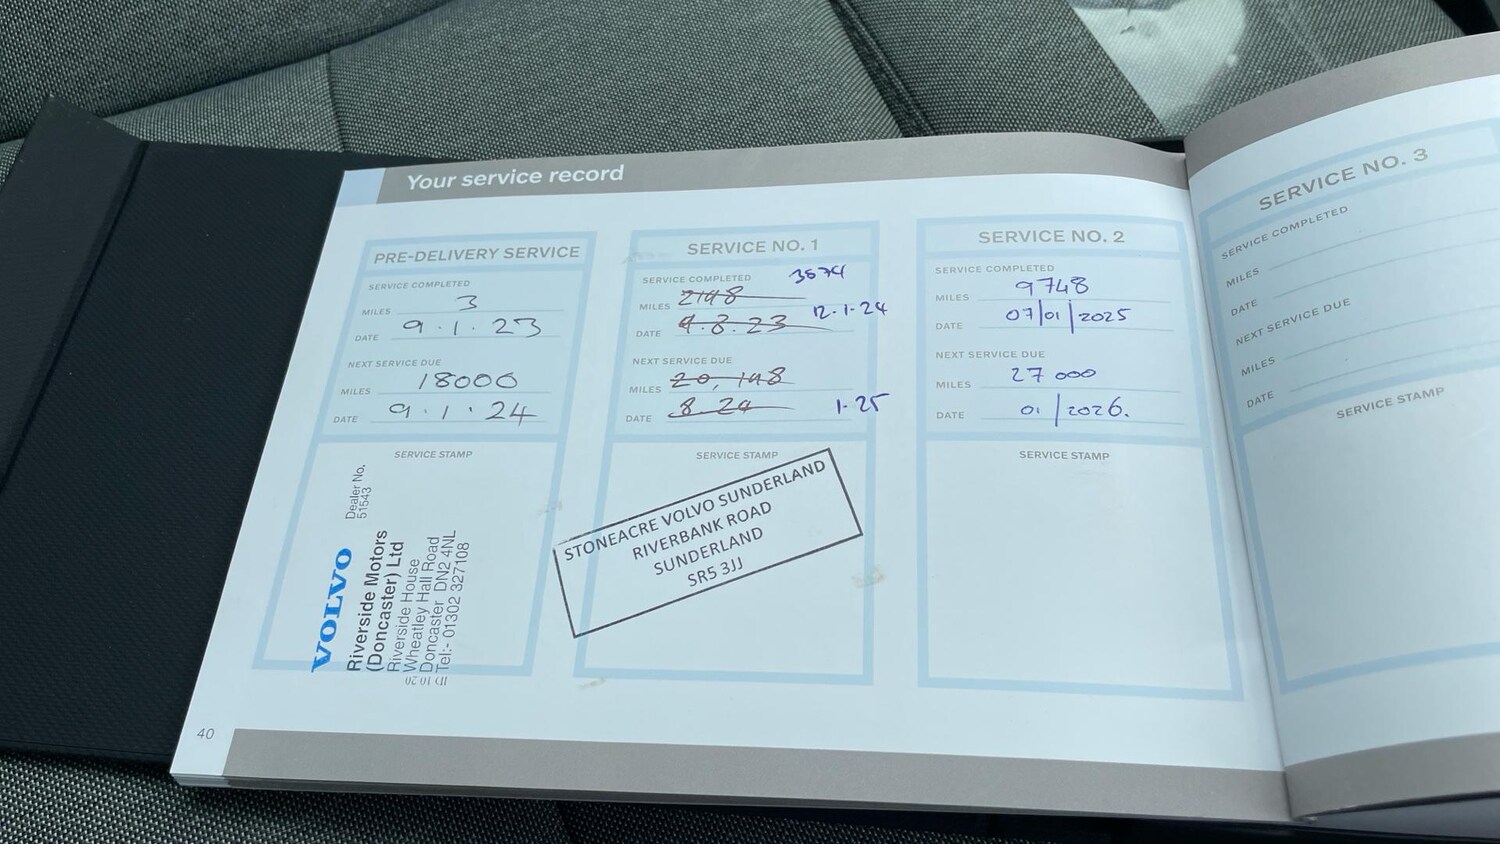 Your service record
PRE-DELIVERY SERVICE
SERVICE COMPLETED
MILES 3
DATE 9.1.23
NEXT SERVICE DUE
MILES 18000
DATE 9.1.24
SERVICE STAMP
VOLVO
Dealer No.
51543
Riverside Motors
(Doncaster) Ltd
Riverside House
Wheatley Hall Road
Doncaster DN2 4NL
Tel:- 01302 327108
SERVICE NO. 1
SERVICE COMPLETED 3574
MILES 2148
DATE 9.8.23 12.1.24
NEXT SERVICE DUE
MILES 20,148
DATE 8.24 1.25
SERVICE STAMP
STONEACRE VOLVO SUNDERLAND
RIVERBANK ROAD
SUNDERLAND
SR5 3JJ
SERVICE NO. 2
SERVICE COMPLETED
MILES 9748
DATE 07/01/2025
NEXT SERVICE DUE
MILES 27 000
DATE 01/2026.
SERVICE STAMP
40
SERVICE NO. 3
SERVICE COMPLETED
MILES
DATE
NEXT SERVICE DUE
MILES
DATE
SERVICE STAMP